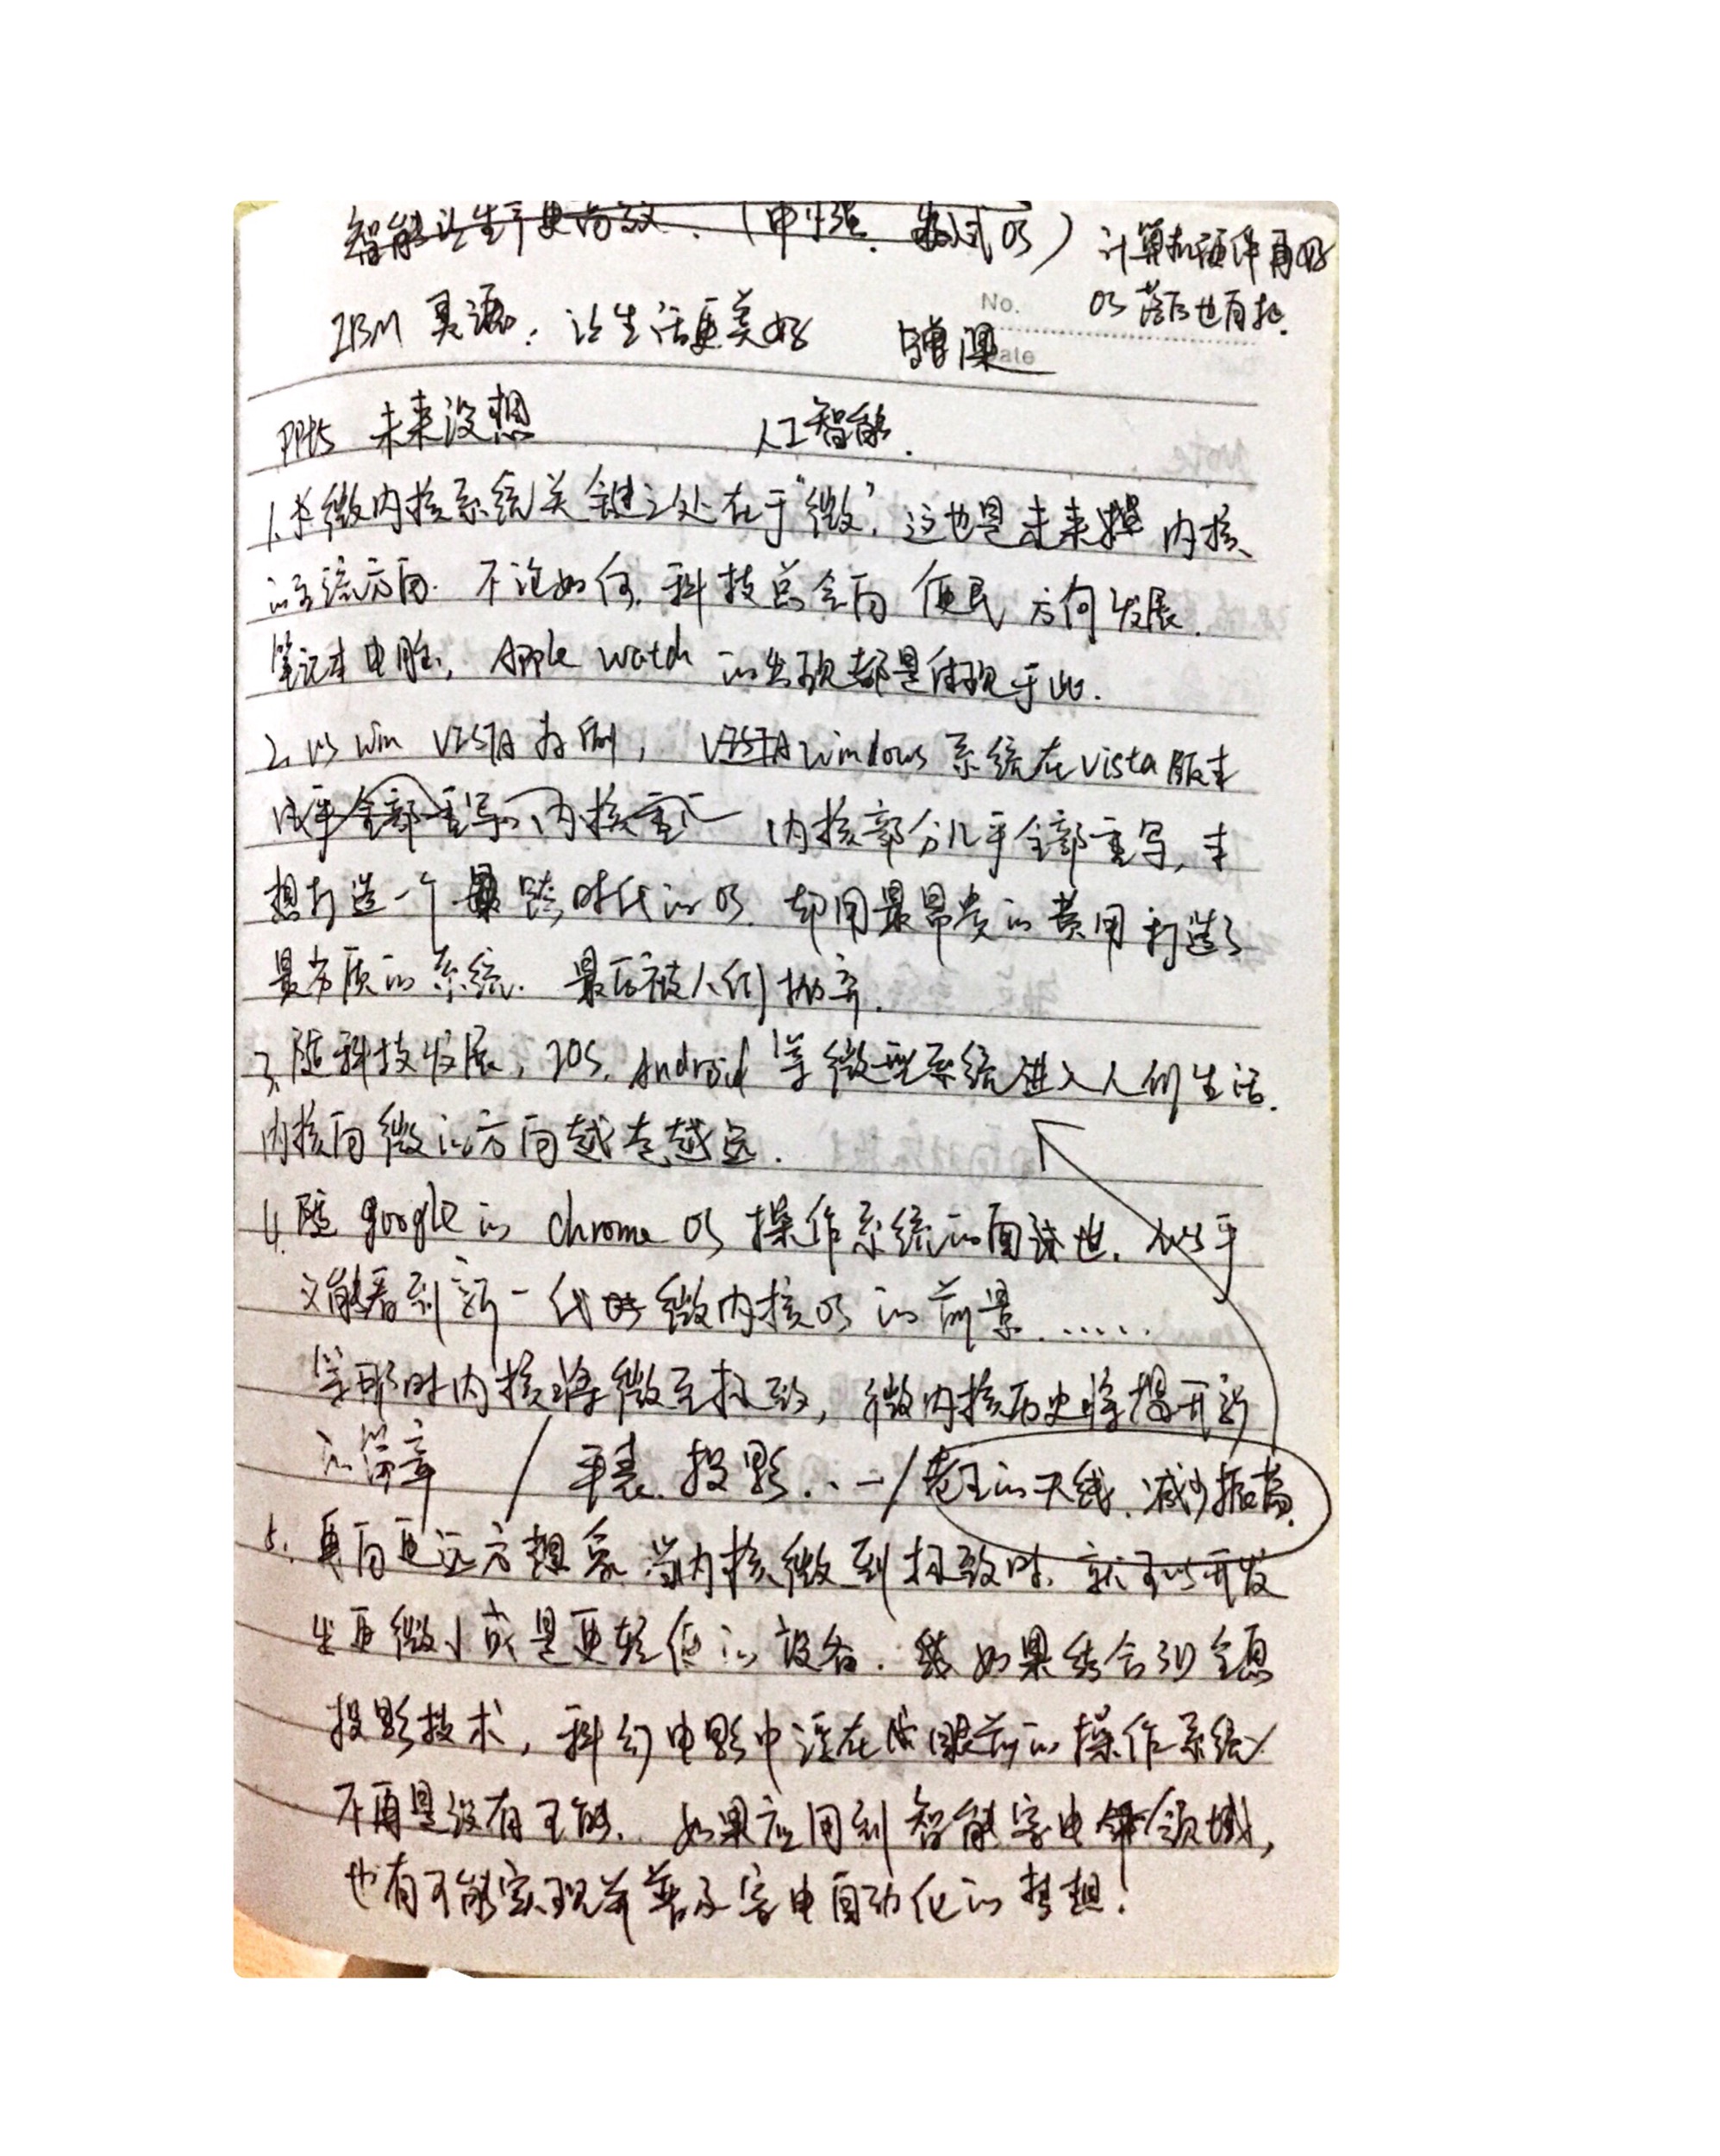 智能让生产更高效.（申强. 嵌式OS）
计算机硬件再好
OS 落后也白扯.
IBM 灵源: 让生活更美好
No.
Date
PPt5 未来设想 人工智能.
1. 微内核系统关键之处在于"微", 这也是未来 内核
的主流方向. 不论如何, 科技总会向 便民 方向发展.
笔记本电脑, Apple Watch 的出现都是体现于此.
2. 以 win VISTA 为例, VISTA windows 系统在 Vista 版本
几乎全部重写 内核重 内核部分几乎全部重写, 本
想打造一个 跨时代的 OS. 却用最昂贵的费用打造了
最劣质的系统. 最后被人们抛弃.
3. 随科技发展, IOS. Android 等微型系统进入人们生活.
内核向微的方向越走越远.
4. 随 google 的 chrome OS 操作系统的面世. 似乎
又能看到新一代 微内核 OS 的前景......
等那时内核将微至极致, 微内核历史将揭开新
的篇章 / 手表. 投影... / 的天线. 减少
5. 再向更远方想象, 当内核微到极致时, 就可以开发
出更微小或是更轻便的设备. 如果结合到全息
投影技术, 科幻电影中浮在 眼前的操作系统
不再是没有可能. 如果应用到智能家电 领域,
也有可能实现并普及家电自动化的梦想!